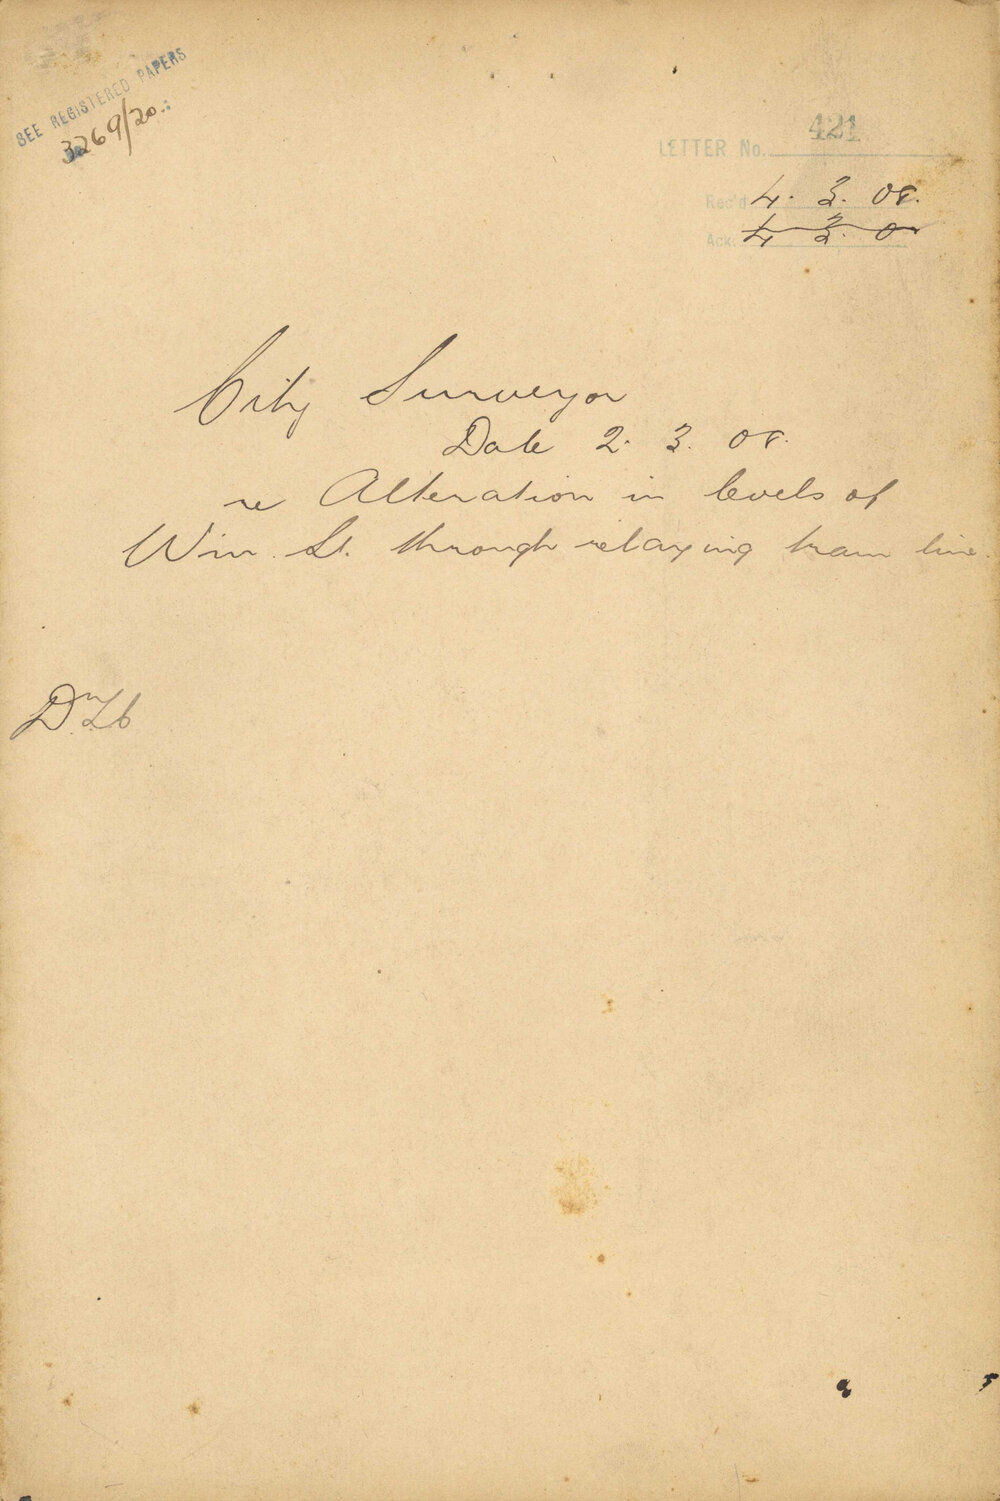 SEE REGISTERED PAPERS
3269/20
LETTER No. 421
Rec'd 4. 3. 08.
Ack. 4 3. 0
City Surveyor
Date 2. 3. 08.
re Alteration in levels of
Wm. St. through relaying tram line.